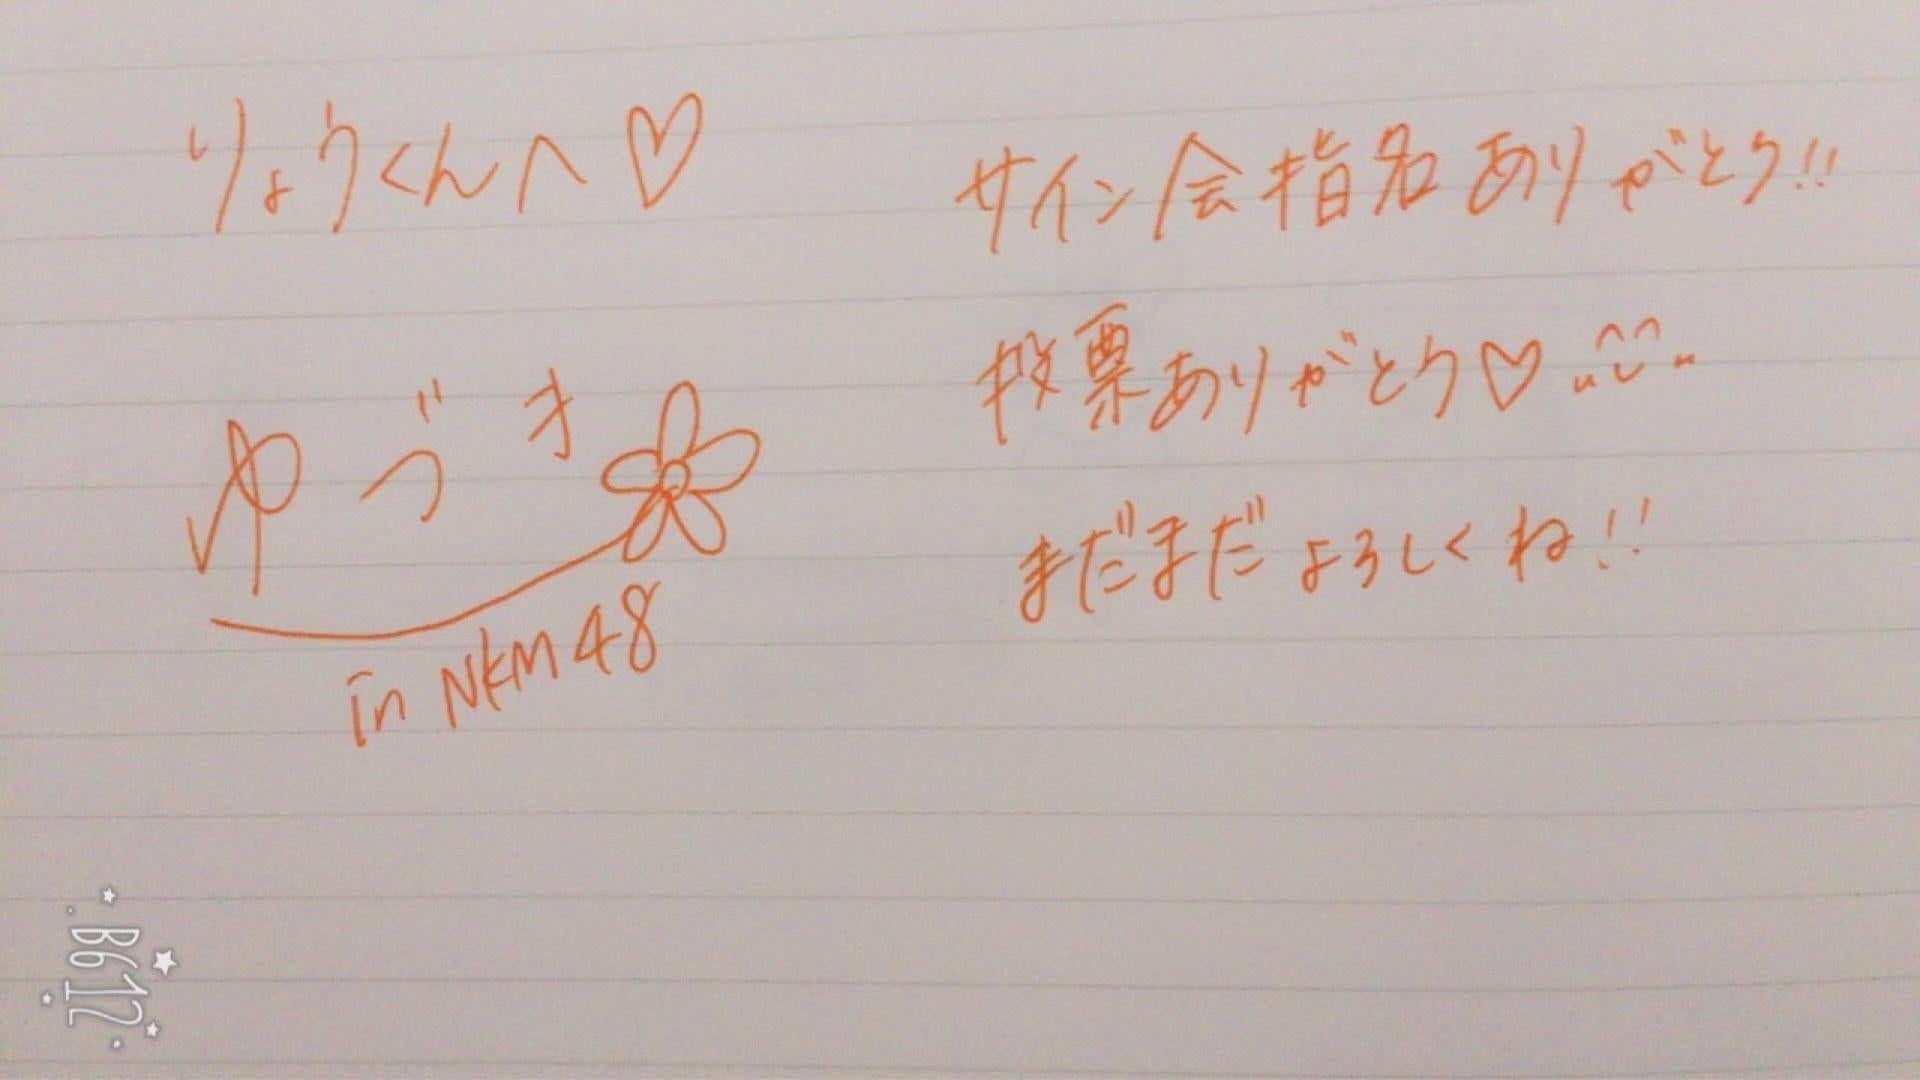 りょうくんへ♡
ゆづき
in NKM48
サイン会指名ありがとう!!
投票ありがとう♡
まだまだよろしくね!!
B612